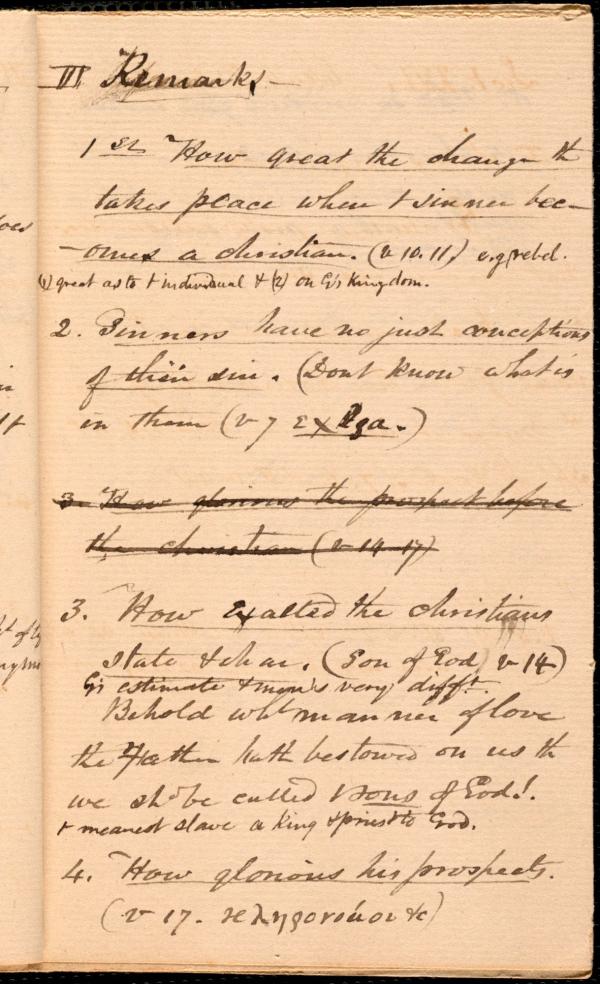 III Remarks—
1st How great the change th
takes place when t sinner bec–
–omes a christian. (v 10. 11) e.g. rebel.
(1) great as to t individual & (2) on G's Kingdom.
2. Sinners have no just conceptions
of their sin. (Dont know what is
in them (v 7 εχθρα.)
3. How glorious the prospect before
the christian (v 14–17)
3. How exalted the christians
state & char. (Son of God v 14)
G's estimate & men's very difft.
Behold wht manner of love
the Father hath bestowed on us th
we shd be called t sons of God!.
t meanest slave a King & priest to God.
4. How glorious his prospects.
(v 17. κληρονόμοι &c)